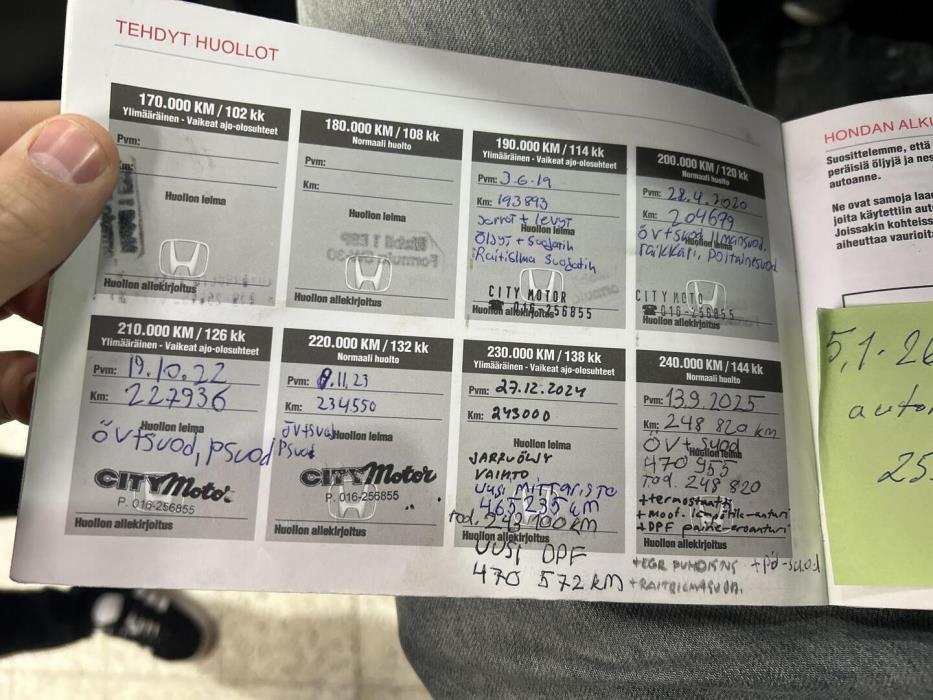 TEHDYT HUOLLOT
170.000 KM / 102 kk
Ylimääräinen - Vaikeat ajo-olosuhteet
Pvm:
Km:
Huollon leima
Huollon allekirjoitus
180.000 KM / 108 kk
Normaali huolto
Pvm:
Km:
Huollon leima
Huollon allekirjoitus
190.000 KM / 114 kk
Ylimääräinen - Vaikeat ajo-olosuhteet
Pvm: 3.6.19
Km: 193893
Jarrut + levyt
Huollon leima
Öljyt + suodatin
Raitisilma suodatin
CITY MOTOR
☎ 016-256855
Huollon allekirjoitus
200.000 KM / 120 kk
Normaali huolto
Pvm: 28.4.2020
Km: 204679
öv+suod. ilmansuod.
Huollon leima
raikkari, poltainesuod
CITY MOTO
☎ 016-256855
Huollon allekirjoitus
210.000 KM / 126 kk
Ylimääräinen - Vaikeat ajo-olosuhteet
Pvm: 19.10.22
Km: 227936
Huollon leima
öv+suod, psuod
CITY Motor
P. 016-256855
Huollon allekirjoitus
220.000 KM / 132 kk
Normaali huolto
Pvm: 9.11.23
Km: 234550
öv+suod
Huollon leima
Psuod
CITY Motor
P. 016-256855
Huollon allekirjoitus
230.000 KM / 138 kk
Ylimääräinen - Vaikeat ajo-olosuhteet
Pvm: 27.12.2024
Km: 243000
Huollon leima
JARRUÖLJY
VAIHTO
UUSI MITTARISTO
465 235 km
tod. 243 100 km
Huollon allekirjoitus
UUSI DPF
470 572 KM
240.000 KM / 144 kk
Normaali huolto
Pvm: 13.9.2025
Km: 248 820 km
öv+suod
Huollon leima
470 955
tod. 248 820
+termostaatti
+moot. lämpötila-anturi
+DPF paine-eroanturi
Huollon allekirjoitus
+EGR PUHDISTUS +pö-suod
+RAITISILMASUOD.
HONDAN ALKU
Suosittelemme, että
peräisiä öljyjä ja nes
autoanne.
Ne ovat samoja laad
joita käytettiin aut
Joissakin kohteiss
aiheuttaa vaurioit
5.1.26
auto
25